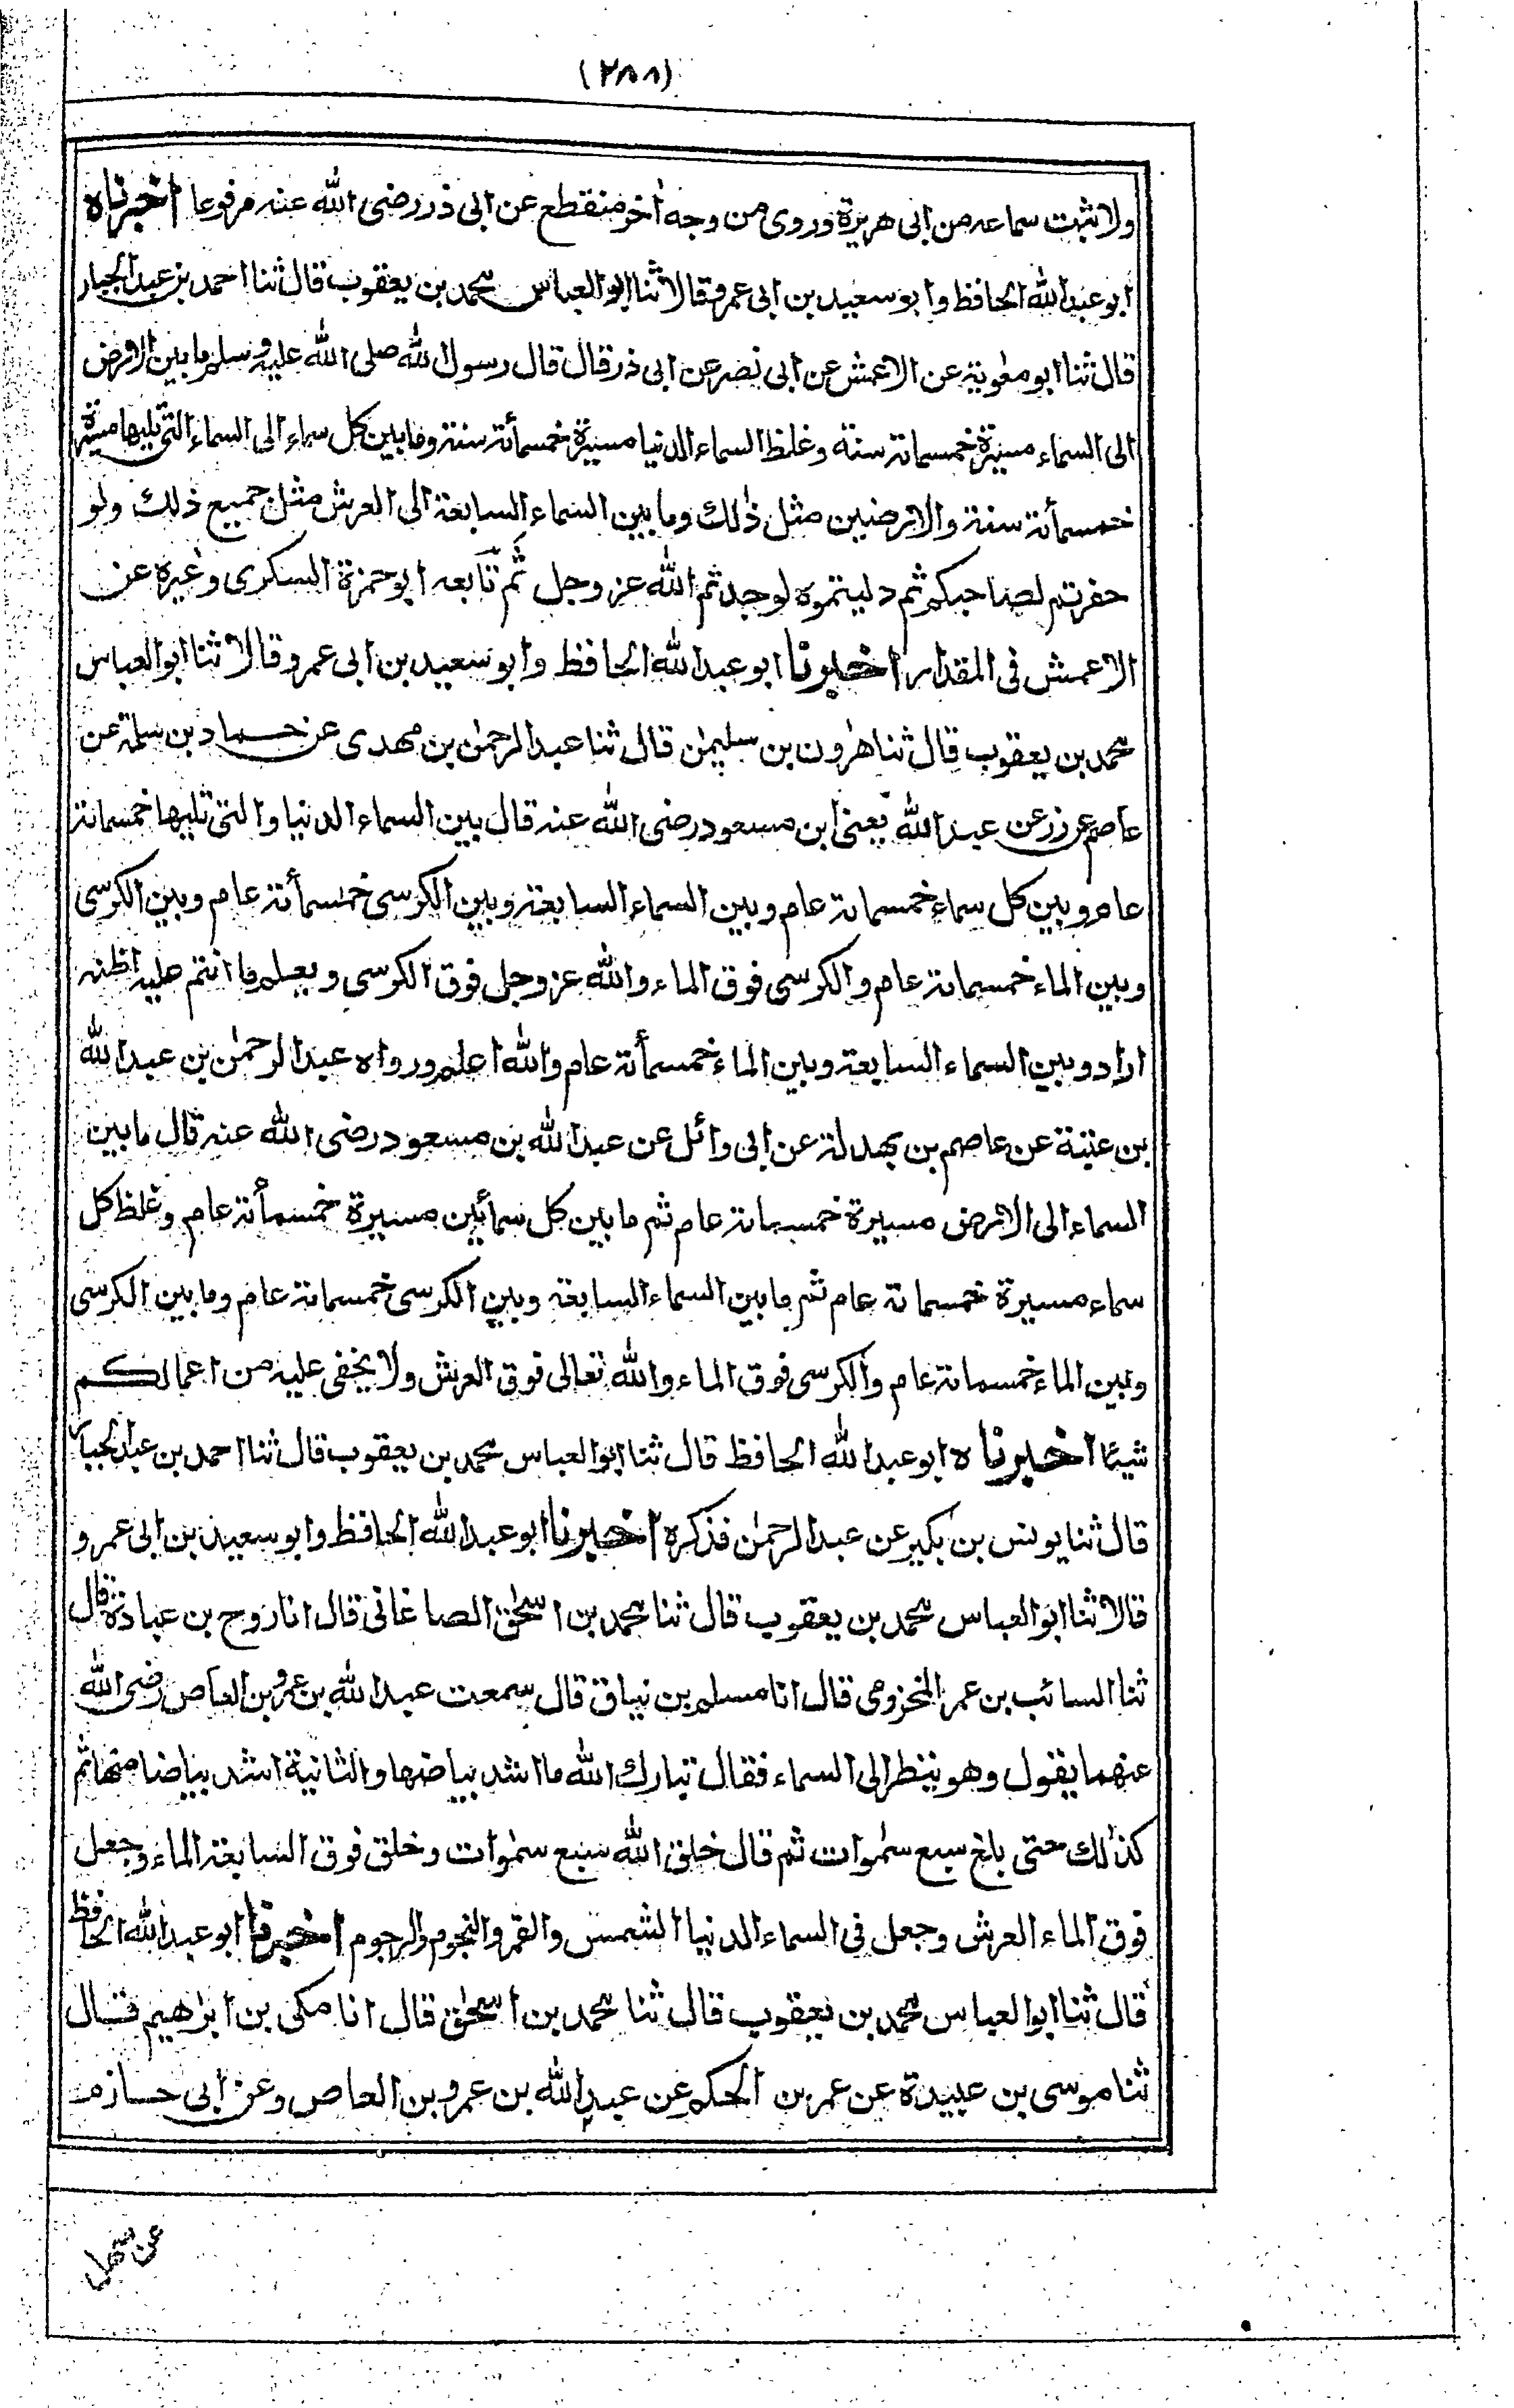 (٢٨٨)
ولا ثبت سماعه من ابى هريرة وروى من وجه اخر منقطع عن ابى ذر رضى الله عنه مرفوعا اخبرناه
ابو عبد الله الحافظ وابو سعيد بن ابى عمرو قالا ثنا ابو العباس محمد بن يعقوب قال ثنا احمد بن عبد الجبار
قال ثنا ابو معٰوية عن الاعمش عن ابى نصر عن ابى ذر قال قال رسول الله صلى الله عليه وسلم ما بين الارض
الى السماء مسيرة خمسمائة سنة وغلظ السماء الدنيا مسيرة خمسمأئة سنة وما بين كل سماء الى السماء التى تليها مسيرة
خمسمأئة سنة والارضين مثل ذٰلك وما بين السماء السابعة الى العرش مثل جميع ذلك ولو
حفرتم لصاحبكم ثم دليتموه لوجد ثم الله عز وجل ثم تابعه ابو حمزة السكرى وغيره عن
الاعمش فى المقدار اخبرنا ابو عبد الله الحافظ وابو سعيد بن ابى عمرو قالا ثنا ابو العباس
محمد بن يعقوب قال ثنا هٰرون بن سليمٰن قال ثنا عبد الرحمٰن بن مهدى عن حماد بن سلمة عن
عاصم عن زر عن عبد الله يعنى ابن مسعود رضى الله عنه قال بين السماء الدنيا والتى تليها خمسمائة
عام وبين كل سماء خمسمائة عام وبين السماء السابعة وبين الكرسى خمسمأئة عام وبين الكرسى
وبين الماء خمسمائة عام والكرسى فوق الماء والله عز وجل فوق الكرسى ويعلم ما انتم عليه اظنه
اراد وبين السماء السابعة وبين الماء خمسمأئة عام والله اعلم ورواه عبد الرحمٰن بن عبد الله
بن عتبة عن عاصم بن بهدلة عن ابى وائل عن عبد الله بن مسعود رضى الله عنه قال ما بين
السماء الى الارض مسيرة خمسمائة عام ثم ما بين كل سمأئين مسيرة خمسمأئة عام وغلظ كل
سماء مسيرة خمسمائة عام ثم ما بين السماء السابعة وبين الكرسى خمسمائة عام وما بين الكرسى
وبين الماء خمسمائة عام والكرسى فوق الماء والله تعالى فوق العرش ولا يخفى عليه من اعمالكم
شيئا اخبرناه ابو عبد الله الحافظ قال ثنا ابو العباس محمد بن يعقوب قال ثنا احمد بن عبد الجبار
قال ثنا يونس بن بكير عن عبد الرحمٰن فذكره اخبرنا ابو عبد الله الحافظ وابو سعيد بن ابى عمرو
قالا ثنا ابو العباس محمد بن يعقوب قال ثنا محمد بن اسحٰق الصاغانى قال انا روح بن عبادة قال
ثنا السائب بن عمر المخزومى قال انا مسلم بن نياق قال سمعت عبد الله بن عمرو بن العاص رضى الله
عنهما يقول وهو ينظر الى السماء فقال تبارك الله ما اشد بياضها والثانية اشد بياضا منها ثم
كذٰلك حتى بلغ سبع سمٰوات ثم قال خلق الله سبع سمٰوات وخلق فوق السابعة الماء وجعل
فوق الماء العرش وجعل فى السماء الدنيا الشمس والقمر والنجوم والرجوم اخبرنا ابو عبد الله الحافظ
قال ثنا ابو العباس محمد بن يعقوب قال ثنا محمد بن اسحٰق قال انا مكى بن ابرٰهيم قال
ثنا موسى بن عبيدة عن عمر بن الحكم عن عبد الله بن عمرو بن العاص وعن ابى حازم
عن سهل